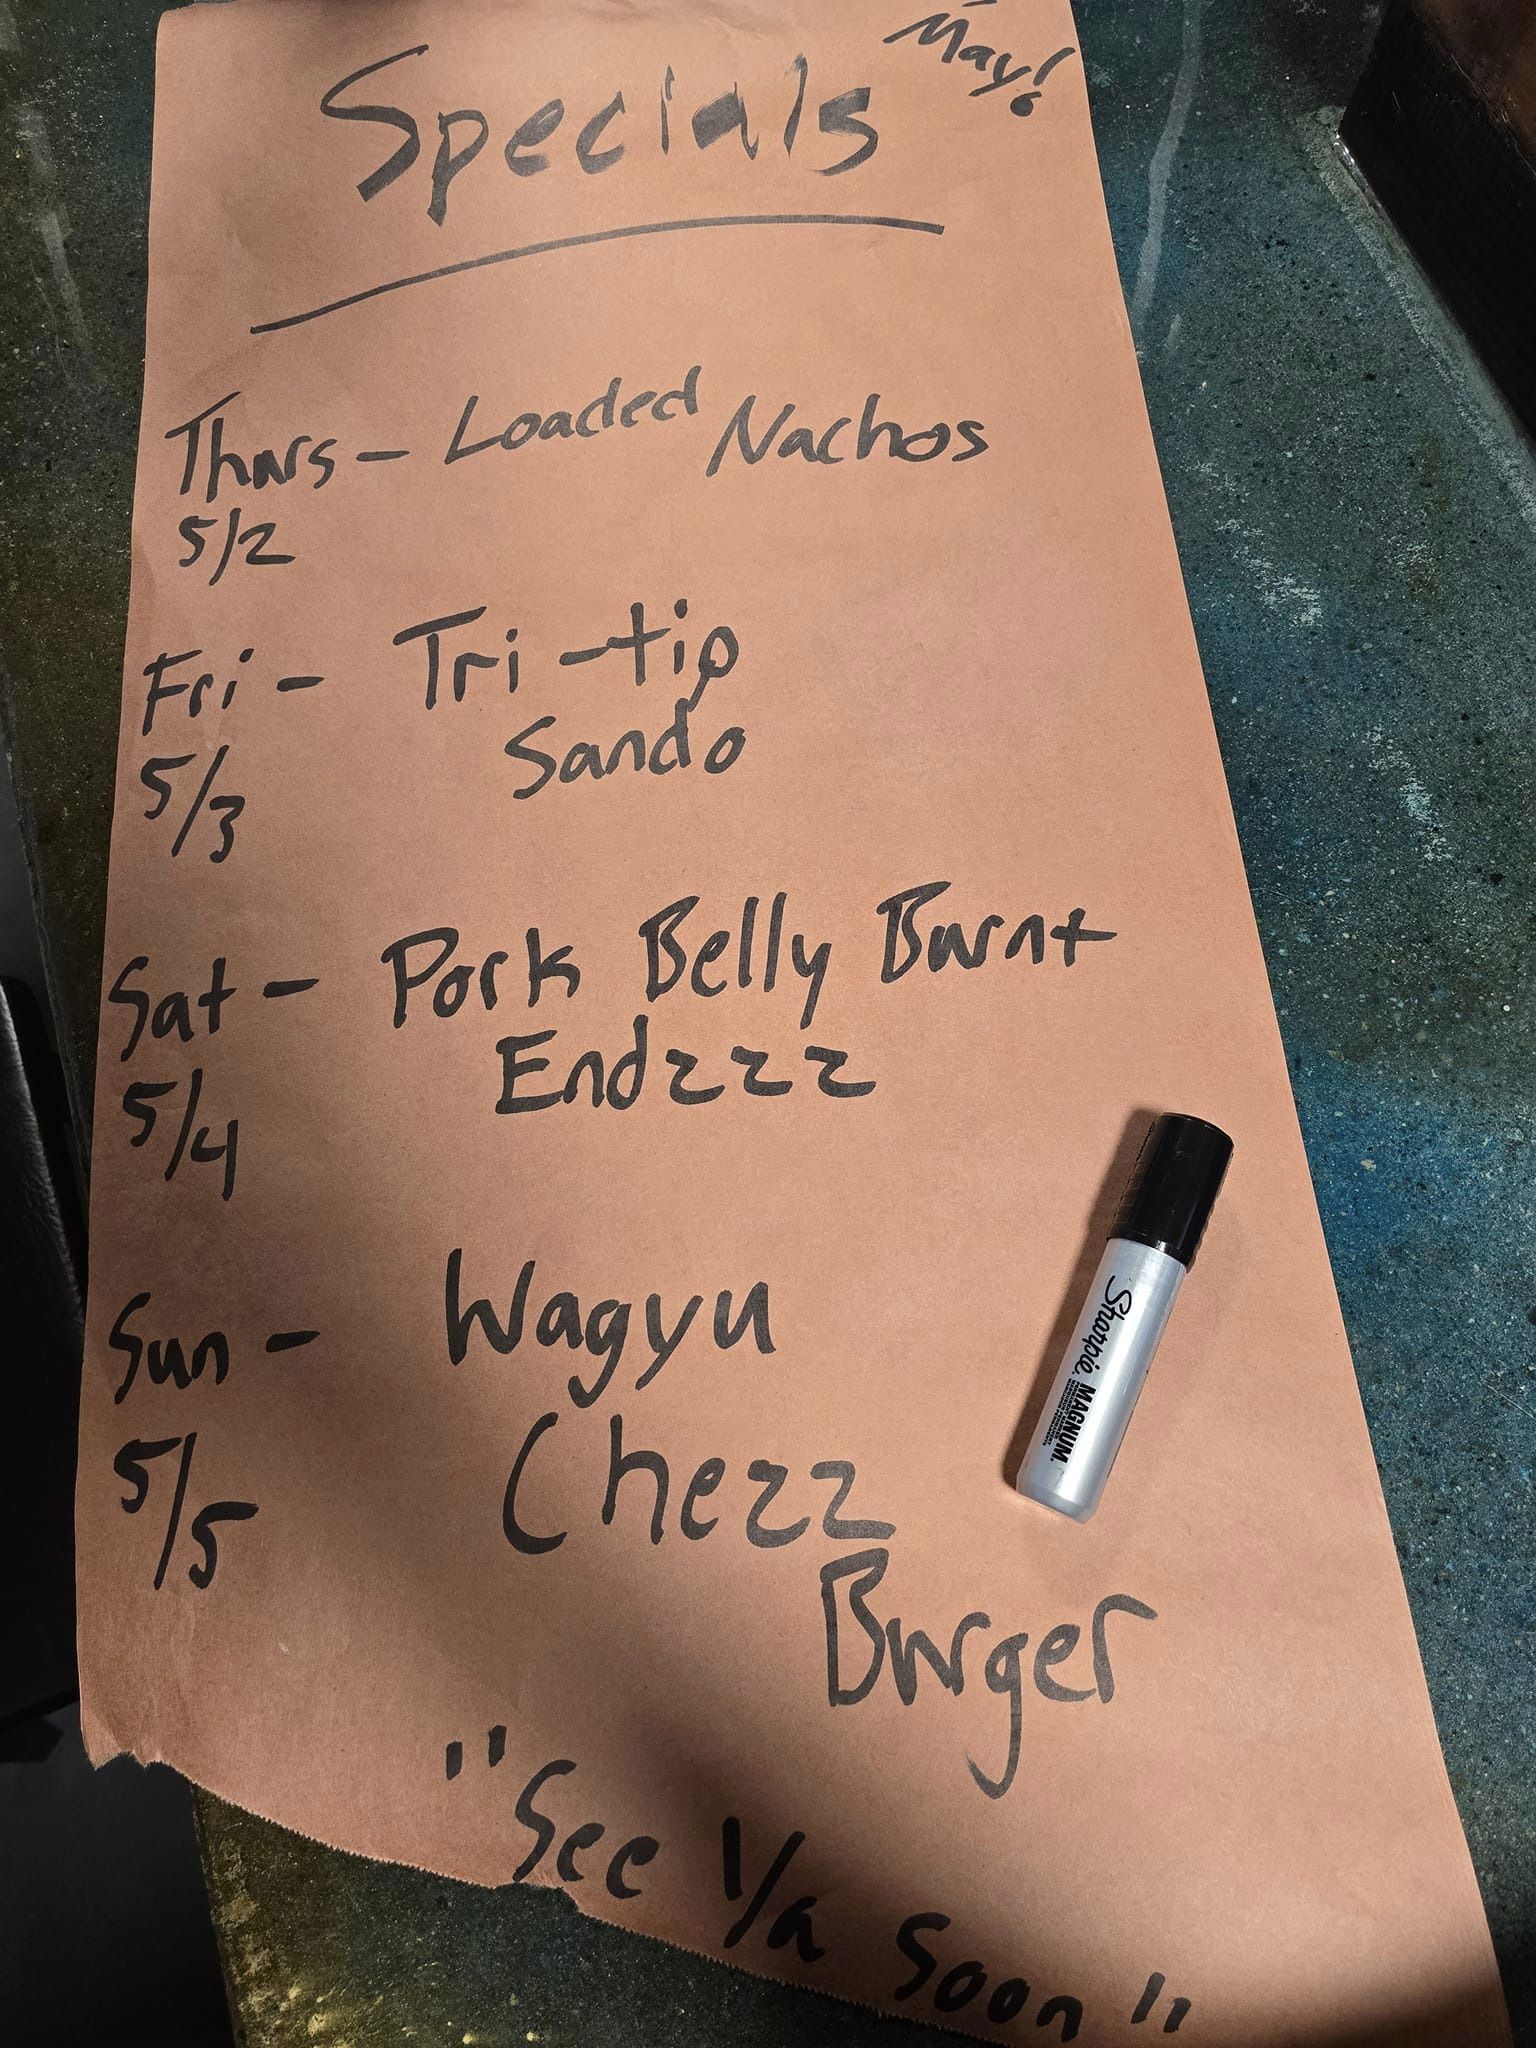 May!
Specials
Thurs - Loaded Nachos
5/2
Fri - Tri-tip
Sando
5/3
Sat - Pork Belly Burnt
Endzzz
5/4
Sun - Wagyu
Chezz
5/5
Burger
"See Ya Soon"
Sharpie. MAGNUM.